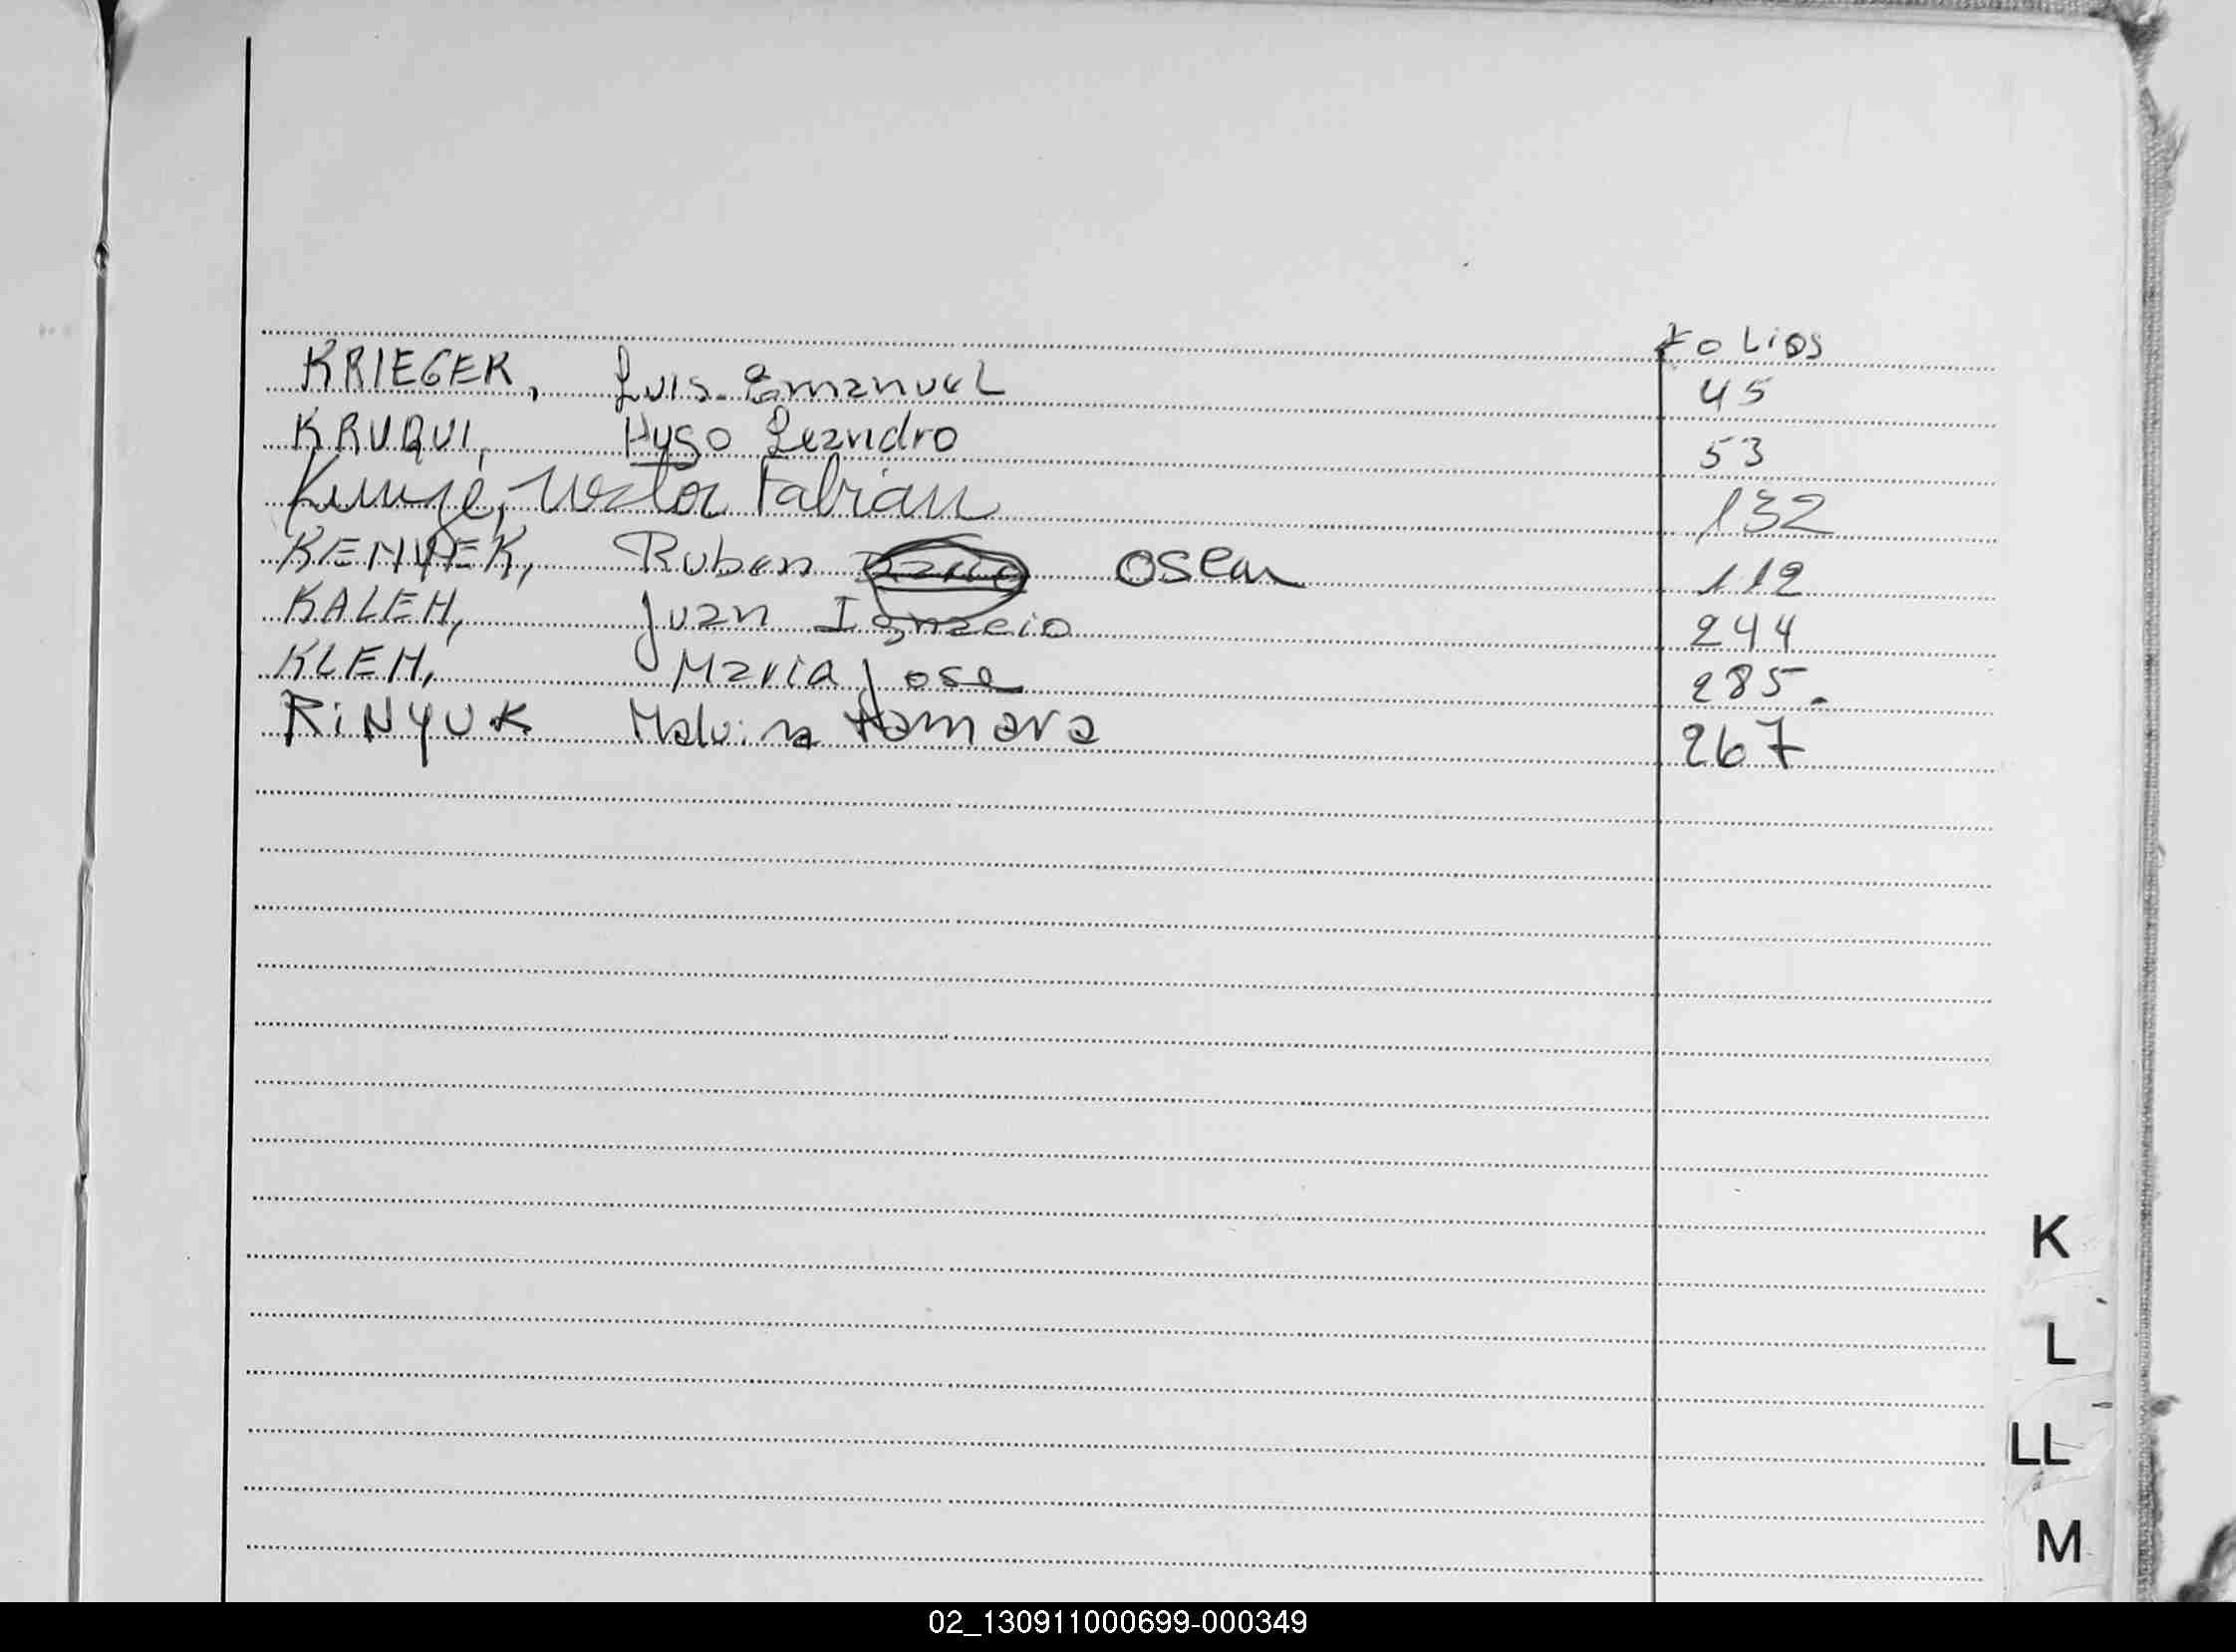 Folios
KRIEGER, Luis Emanuel 45
KRUQUI, Hugo Leandro 53
Victor Fabian 132
Ruben Oscar 112
KALEH, Juan Ignacio 244
KLEH, Maria Jose 285.
RINYUK Malvina Tamara 267
K
L
LL
M
02_130911000699-000349